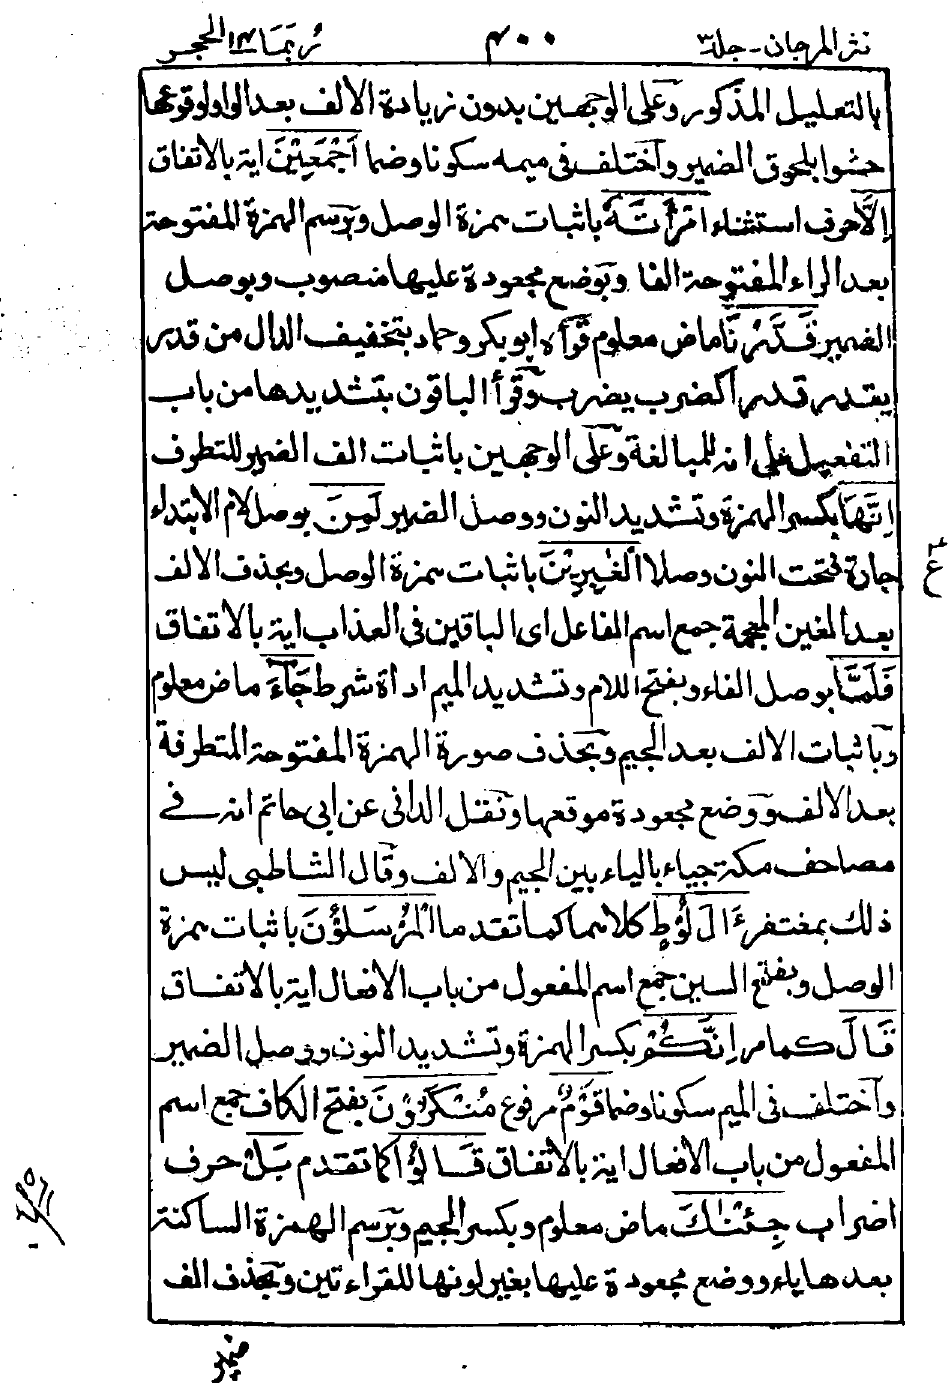 نثر المرجان - جلد ٣ ٤٠٠ ربما ١٤ الحجر
بالتعليل المذكور وعلى الوجهين بدون زيادة الالف بعد الواو لوقوعها
حشوا بلحوق الضمير وآختلف فى ميمه سكونا وضما اَجْمَعِيْنَ اية بالاتفاق
اِلَّا حرف استثناء امْرَأَتَهٗ باثبات همزة الوصل وبرسم الهمزة المفتوحة
بعد الراء المفتوحة الفا وبوضع مجعودة عليها منصوب وبوصل
الضمير قَدَّرْنَّا ماض معلوم قرأه ابو بكر وحماد بتخفيف الدال من قدر
يقدر قدرا كضرب يضرب وقرأ الباقون بتشديدها من باب
التفعيل على انه للمبالغة وعلى الوجهين باثبات الف الضمير للتطرف
اِنَّهَا بكسر الهمزة وتشديد النون ووصل الضمير لَمِنَ بوصل لام الابتداء
جارة فتحت النون وصلا الْغٰبِرِيْنَ باثبات همزة الوصل وبحذف الالف
بعد الغين المعجمة جمع اسم الفاعل اى الباقين فى العذاب اية بالاتفاق
فَلَمَّا بوصل الفاء وبفتح اللام وتشديد الميم اداة شرط جَآءَ ماض معلوم
وباثبات الالف بعد الجيم وبحذف صورة الهمزة المفتوحة المتطرفة
بعد الالف ووضع مجعودة موقعها ونقل الدانى عن ابى حاتم انه فے
مصاحف مكة جياء بالياء بين الجيم والالف وقال الشاطبى ليس
ذلك بمغتفر ءَالَ لُوْطٍ كلاهما كما تقدما الْمُرْسَلُوْنَ باثبات همزة
الوصل وبفتح السين جمع اسم المفعول من باب الافعال اية بالاتفاق
قَالَ كما مر اِنَّكُمْ بكسر الهمزة وتشديد النون ووصل الضمير
وآختلف فى الميم سكونا وضما قَوْمٌ مرفوع مُنْكَرُوْنَ بفتح الكاف جمع اسم
المفعول من باب الافعال اية بالاتفاق قَالُوْا كما تقدم بَلْ حرف
اضراب جِئْنٰكَ ماض معلوم وبكسر الجيم وبرسم الهمزة الساكنة
بعدها ياء ووضع مجعودة عليها بغير لونها للقراءتين وبحذف الف